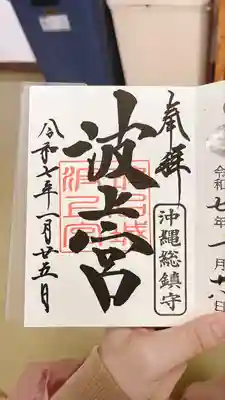 奉拝
沖縄総鎮守
波上宮
令和七年一月廿五月
令和七年一月十